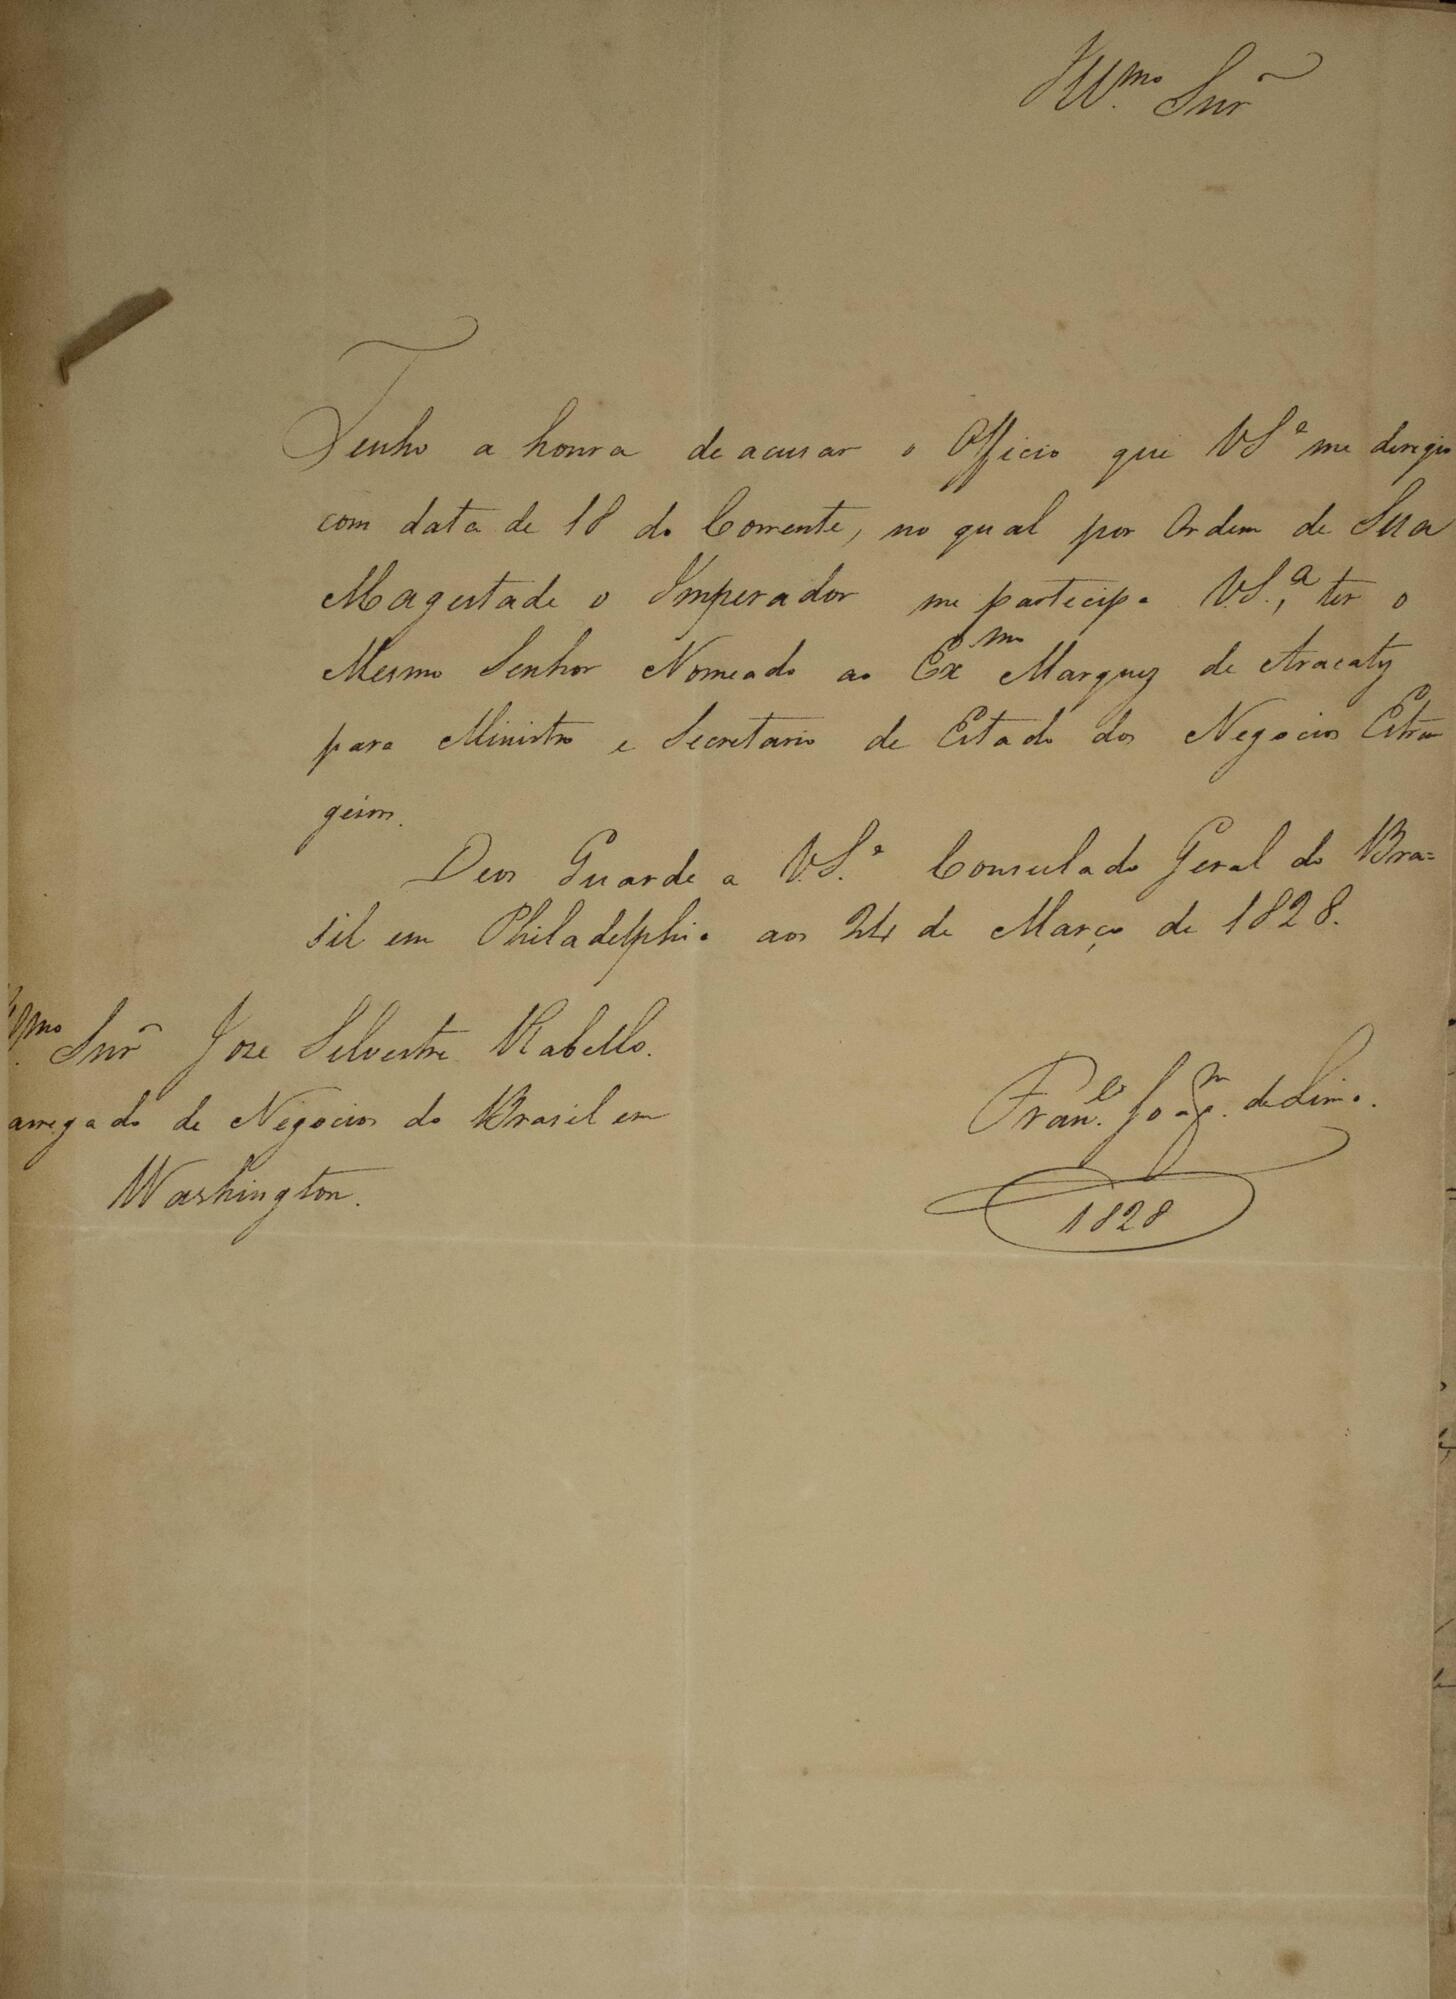 Ill.mo Snr
Tenho a honra de acusar o Officio que V.S.ª me dirigio
com data de 18 do Corrente, no qual por Ordem de Sua
Magestade o Imperador me participa V.S.ª, ter o
Mesmo Senhor Nomeado ao Ex.mo Marquez de Aracaty
para Ministro e Secretario de Estado dos Negocios Estran
geiros.
Deos Guarde a V.S.ª Consulado Geral do Bra=
sil em Philadelphia aos 24 de Março de 1828.
Snr Joze Silvestre Rabello.
arregado de Negocios do Brasil em
Washington.
Fran.co Joaq.m de Lima.
1828